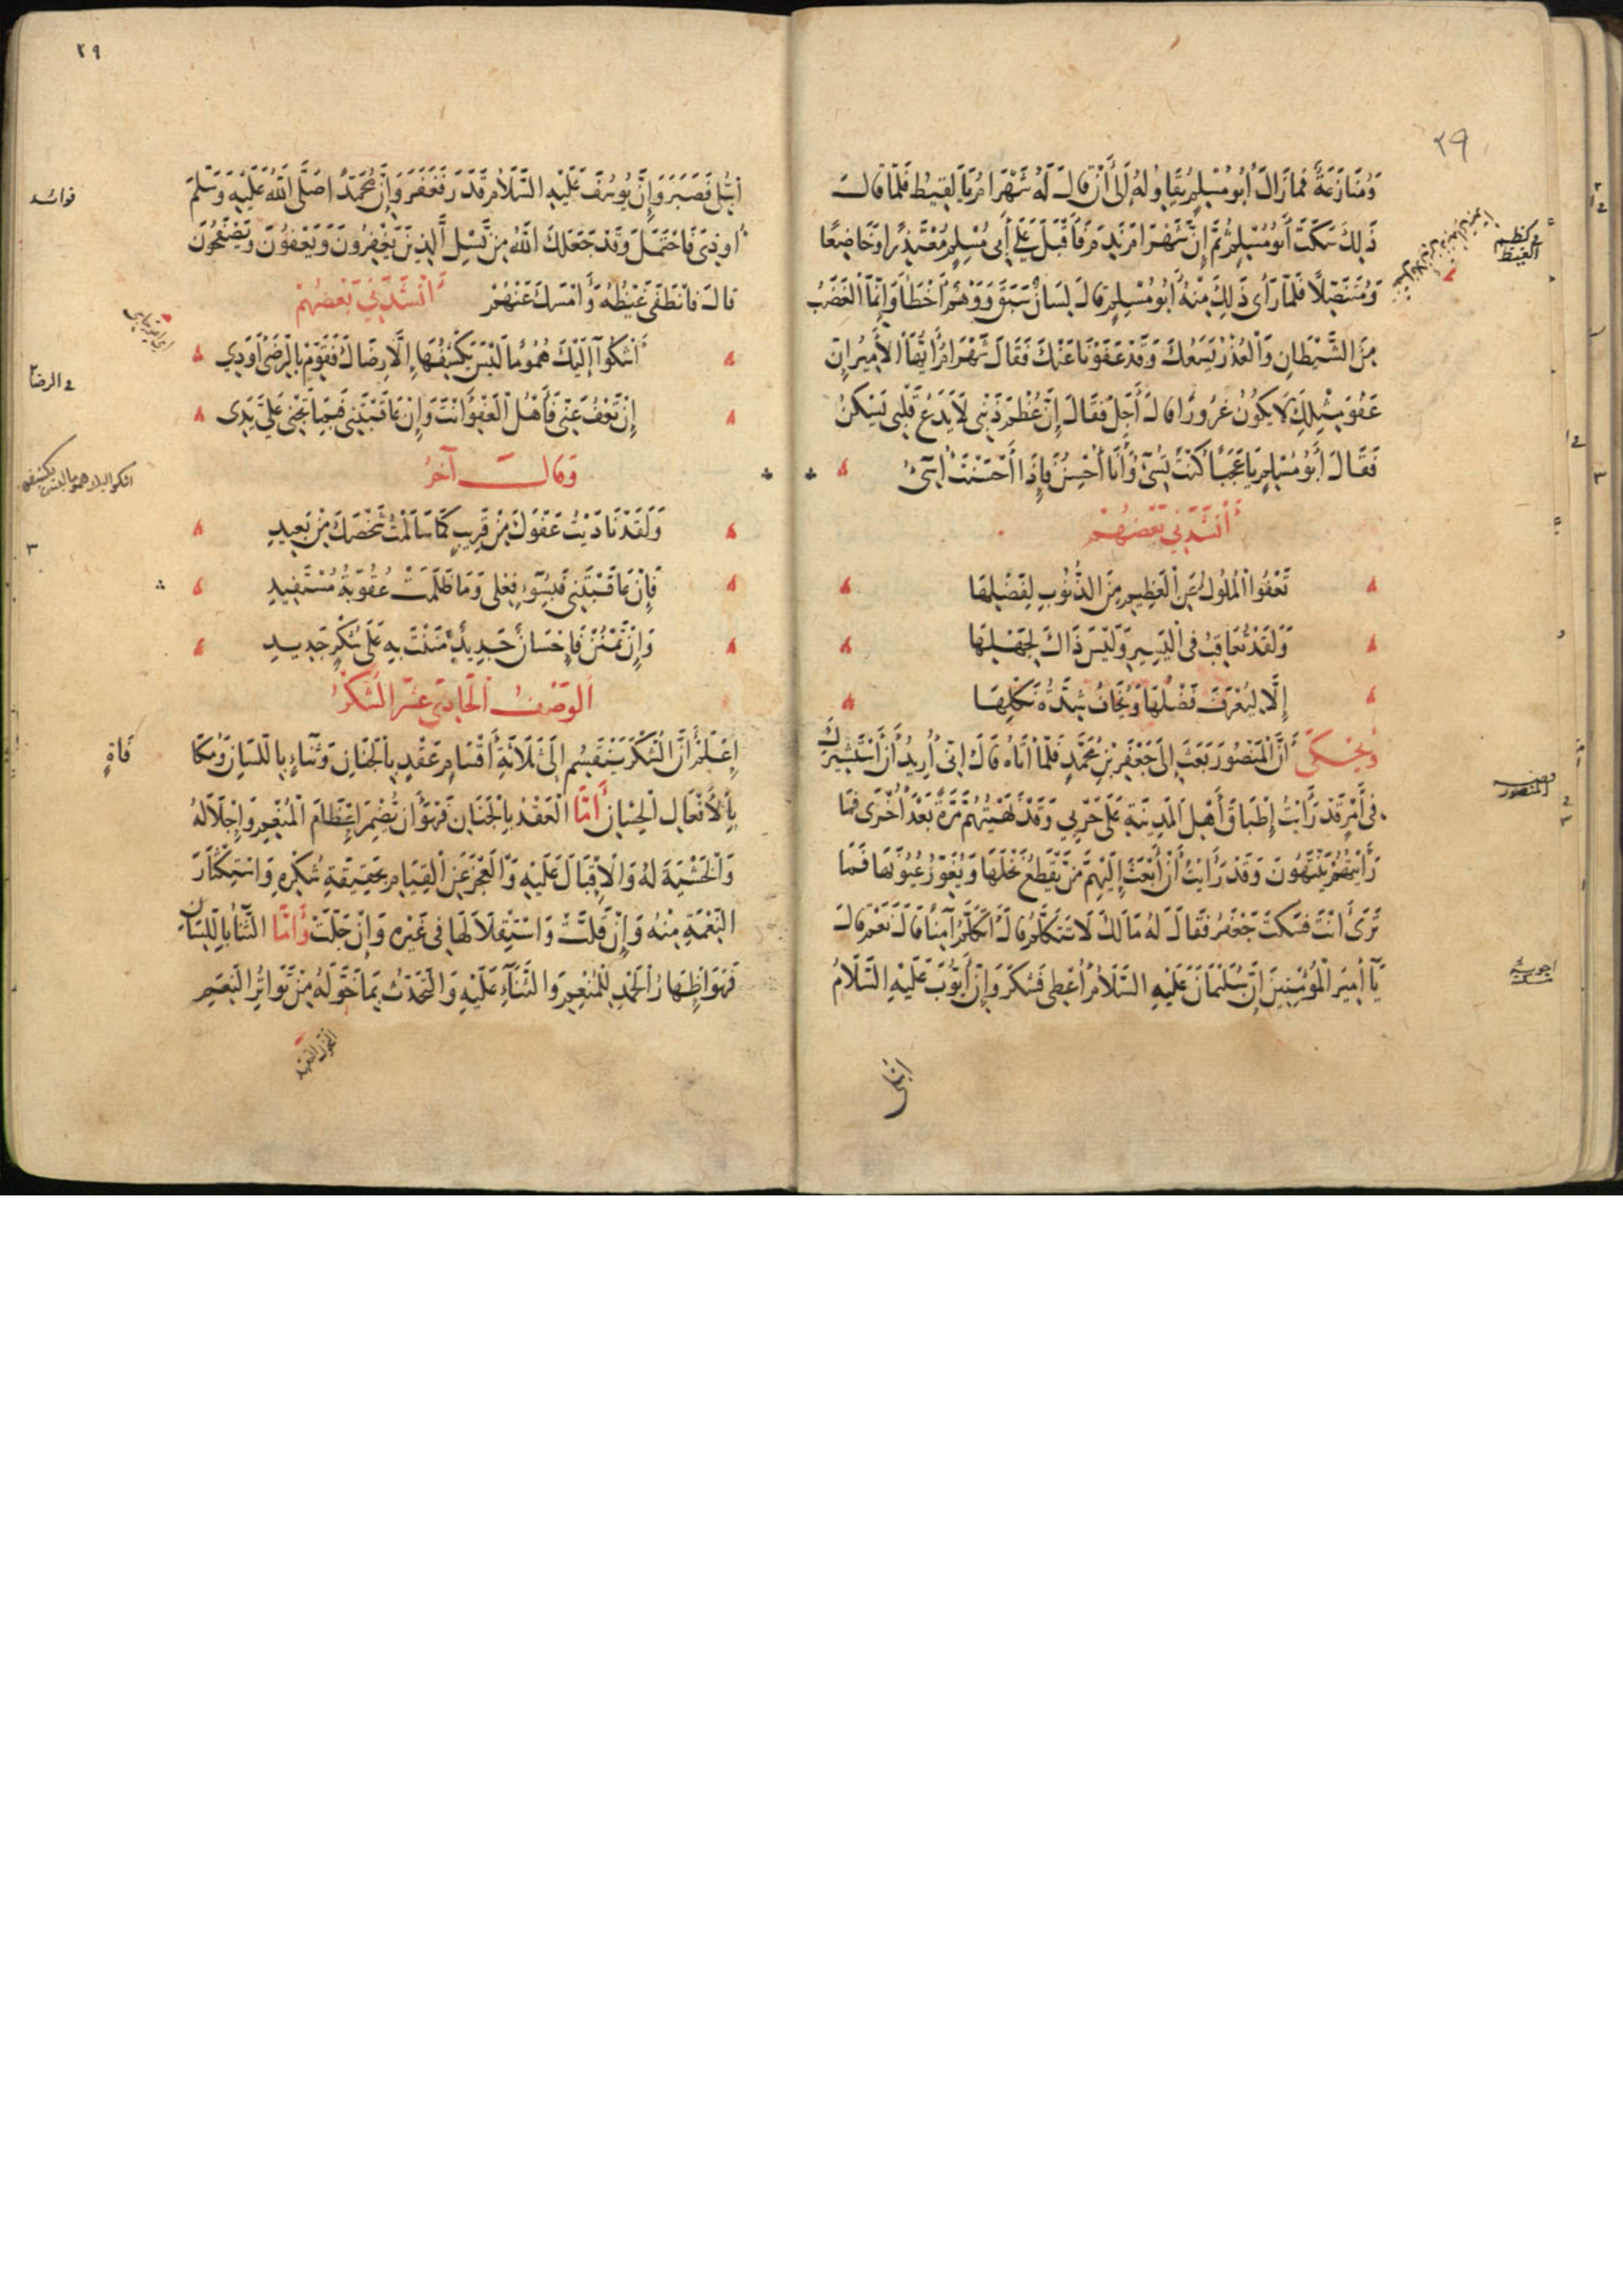 ٢٩
وَمُنَازَعَةٌ فَمَا زَالَ أَبُو مُسْلِمٍ يُقَاوِلُهُ إِلَى أَنْ قَالَ لَهُ شَهْرَامُ يَا لَقِيطُ فَلَمَّا قَالَ
ذَلِكَ سَكَتَ أَبُو مُسْلِمٍ ثُمَّ إِنَّ شَهْرَامَ نَدِمَ فَأَقْبَلَ عَلَى أَبِي مُسْلِمٍ مُعْتَذِرًا وَخَاضِعًا
وَمُتَنَصِّلاً فَلَمَّا رَأَى ذَلِكَ مِنْهُ أَبُو مُسْلِمٍ قَالَ لِسَانٌ سَبَقَ وَوَهْمٌ أَخْطَأَ وَإِنَّمَا الْغَضَبُ
مِنَ الشَّيْطَانِ وَالْعُذْرُ يَسَعُكَ وَقَدْ عَفَوْنَا عَنْكَ فَقَالَ شَهْرَامُ أَيُّهَا الأَمِيرُ إِنَّ
عَفْوَ مِثْلِكَ لَا يَكُونُ غُرُورًا قَالَ أَجَلْ فَقَالَ إِنَّ عُظْمَ ذَنْبِي لَا يَدَعُ قَلْبِي يَسْكُنُ
فَقَالَ أَبُو مُسْلِمٍ يَا عَجَبًا كُنْتَ تُسِيءُ وَأَنَا أُحْسِنُ فَإِذَا أَحْسَنْتَ أُسِيءُ
أَنْشَدَنِي بَعْضُهُمْ
تَعْفُوا الْمُلُوكُ عَنِ الْعَظِيمِ مِنَ الذُّنُوبِ لِفَضْلِهَا
وَلَقَدْ تُعَاقِبُ فِي الْيَسِيرِ وَلَيْسَ ذَاكَ لِجَهْلِهَا
إِلَّا لِيُعْرَفَ فَضْلُهَا وَيُخَافُ شِدَّةُ نَكْلِهَا
وَيُحْكَى أَنَّ الْمَنْصُورَ بَعَثَ إِلَى جَعْفَرِ بْنِ مُحَمَّدٍ فَلَمَّا أَتَاهُ قَالَ إِنِّي أُرِيدُ أَنْ أَسْتَشِيرَكَ
فِي أَمْرٍ قَدْ رَأَيْتُ إِطْبَاقَ أَهْلِ الْمَدِينَةِ عَلَى حَرْبِي وَقَدْ نَهَيْتُهُمْ مَرَّةً بَعْدَ أُخْرَى فَمَا
رَأَيْتُهُمْ يَنْتَهُونَ وَقَدْ رَأَيْتُ أَنْ أَبْعَثَ إِلَيْهِمْ مَنْ يَقْطَعُ نَخْلَهَا وَيُغَوِّرُ عُيُونَهَا فَمَا
تَرَى أَنْتَ فَسَكَتَ جَعْفَرُ فَقَالَ لَهُ مَا لَكَ لَا تَتَكَلَّمُ قَالَ أَتَكَلَّمُ آمِنًا قَالَ نَعَمْ قَالَ
يَا أَمِيرَ الْمُؤْمِنِينَ إِنَّ سُلَيْمَانَ عَلَيْهِ السَّلَامُ أُعْطِيَ فَشَكَرَ وَإِنَّ أَيُّوبَ عَلَيْهِ السَّلَامُ
ابتلى
كظم
الغيظ
المنصور
٢٩
ابْتُلِيَ فَصَبَرَ وَإِنَّ يُوسُفَ عَلَيْهِ السَّلَامُ قَدَرَ فَغَفَرَ وَإِنَّ مُحَمَّدًا صَلَّى اللّٰهُ عَلَيْهِ وَسَلَّمَ
أُوذِيَ فَاحْتَمَلَ وَقَدْ جَعَلَكَ اللّٰهُ مِنْ نَسْلِ الَّذِينَ يَغْفِرُونَ وَيَعْفُونَ وَيَصْفَحُونَ
قَالَ فَانْطَفَى غَيْظُهُ وَأَمْسَكَ عَنْهُمْ أَنْشَدَنِي بَعْضُهُمْ
أَشْكُوا إِلَيْكَ هُمُومًا لَيْسَ يَكْشِفُهَا إِلَّا رِضَاكَ فَقَوِّمْ بِالرِّضَى أَوَدِي
إِنْ تَعْفُ عَنِّي فَأَهْلُ الْعَفْوِ أَنْتَ وَإِنْ عَاقَبْتَنِي فَبِمَا تَجْنِي عَلَيَّ يَدِي
وَقَالَ آخَرُ
وَلَقَدْ نَادَيْتُ عَفْوَكَ مِنْ قَرِيبٍ كَمَا سَالَمْتُ شَخْصَكَ مِنْ بَعِيدِ
فَإِنْ عَاقَبْتَنِي فَبِسُوءِ فِعْلِي وَمَا ظَلَمَتْ عُقُوبَةُ مُسْتَفِيدِ
وَإِنْ تَمْنُنْ فَإِحْسَانٌ جَدِيدٌ مَنَنْتَ بِهِ عَلَى شُكْرٍ جَدِيدِ
الْوَصْفُ الْحَادِي عَشَرَ الشُّكْرُ
اِعْلَمْ أَنَّ الشُّكْرَ يَنْقَسِمُ إِلَى ثَلَاثَةِ أَقْسَامٍ عَقْدٍ بِالْجَنَانِ وَثَنَاءٍ بِاللِّسَانِ وَمُكَا
بِالأَفْعَالِ الْحِسَانِ أَمَّا الْعَقْدُ بِالْجَنَانِ فَهُوَ أَنْ يُضْمِرَ إِعْظَامَ الْمُنْعِمِ وَإِجْلَالَهُ
وَالْخَشْيَةَ لَهُ وَالإِقْبَالَ عَلَيْهِ وَالْعَجْزَ عَنِ الْقِيَامِ بِحَقِيقَةِ شُكْرِهِ وَاسْتِكْثَارَ
النِّعْمَةِ مِنْهُ وَإِنْ قَلَّتْ وَاسْتِقْلَالَهَا فِي غَيْرِهِ وَإِنْ جَلَّتْ وَأَمَّا الثَّنَاءُ بِاللِّسَانِ
فَهُوَ إِظْهَارُ الْحَمْدِ لِلْمُنْعِمِ وَالثَّنَاءِ عَلَيْهِ وَالتَّحَدُّثُ بِمَا خَوَّلَهُ مِنْ تَوَاتُرِ النِّعَمِ
فوائد
في الرضا
فَاةٍ